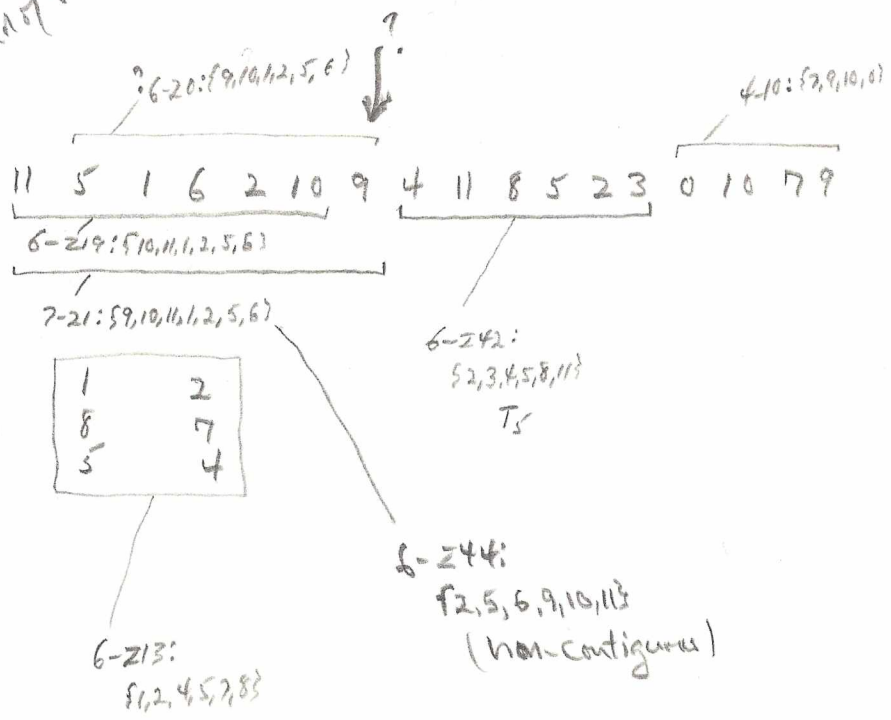 ?
?6-20:{9,10,1,2,5,6}
4-10:{7,9,10,0}
11 5 1 6 2 10 9 4 11 8 5 2 3 0 10 7 9
6-Z19:{10,11,1,2,5,6}
7-21:{9,10,11,1,2,5,6}
6-Z42:
{2,3,4,5,8,11}
T5
1 2
8 7
5 4
6-Z44:
{2,5,6,9,10,11}
(non-contiguous)
6-Z13:
{1,2,4,5,7,8}